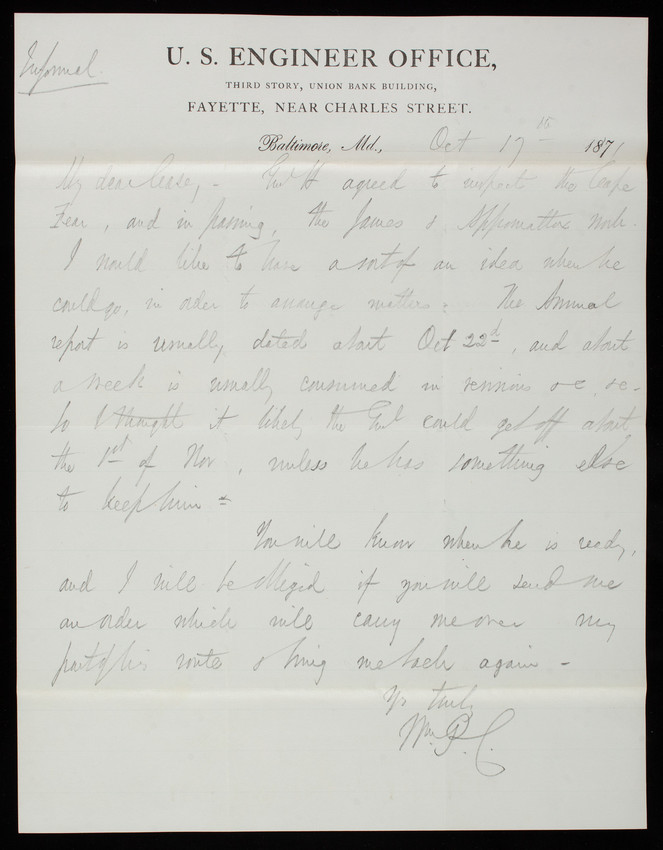 Informal.
U. S. ENGINEER OFFICE,
THIRD STORY, UNION BANK BUILDING,
FAYETTE, NEAR CHARLES STREET.
Baltimore, Md., Oct 17th 1871
My dear Casey, - Genl H agreed to inspect the Cape
Fear, and in passing, the James & Appomattox work.
I would like to have a sort of an idea when he
could go, in order to arrange matters. The Annual
report is usually dated about Oct 22d, and about
a week is usually consumed in revisions &c, &c -
So I thought it likely the Genl could get off about
the 1st of Nov, unless he has something else
to keep him -
You will know when he is ready,
and I will be obliged if you will send me
an order which will carry me over my
part of his route & bring me back again -
Yrs truly
Wm. P. C.